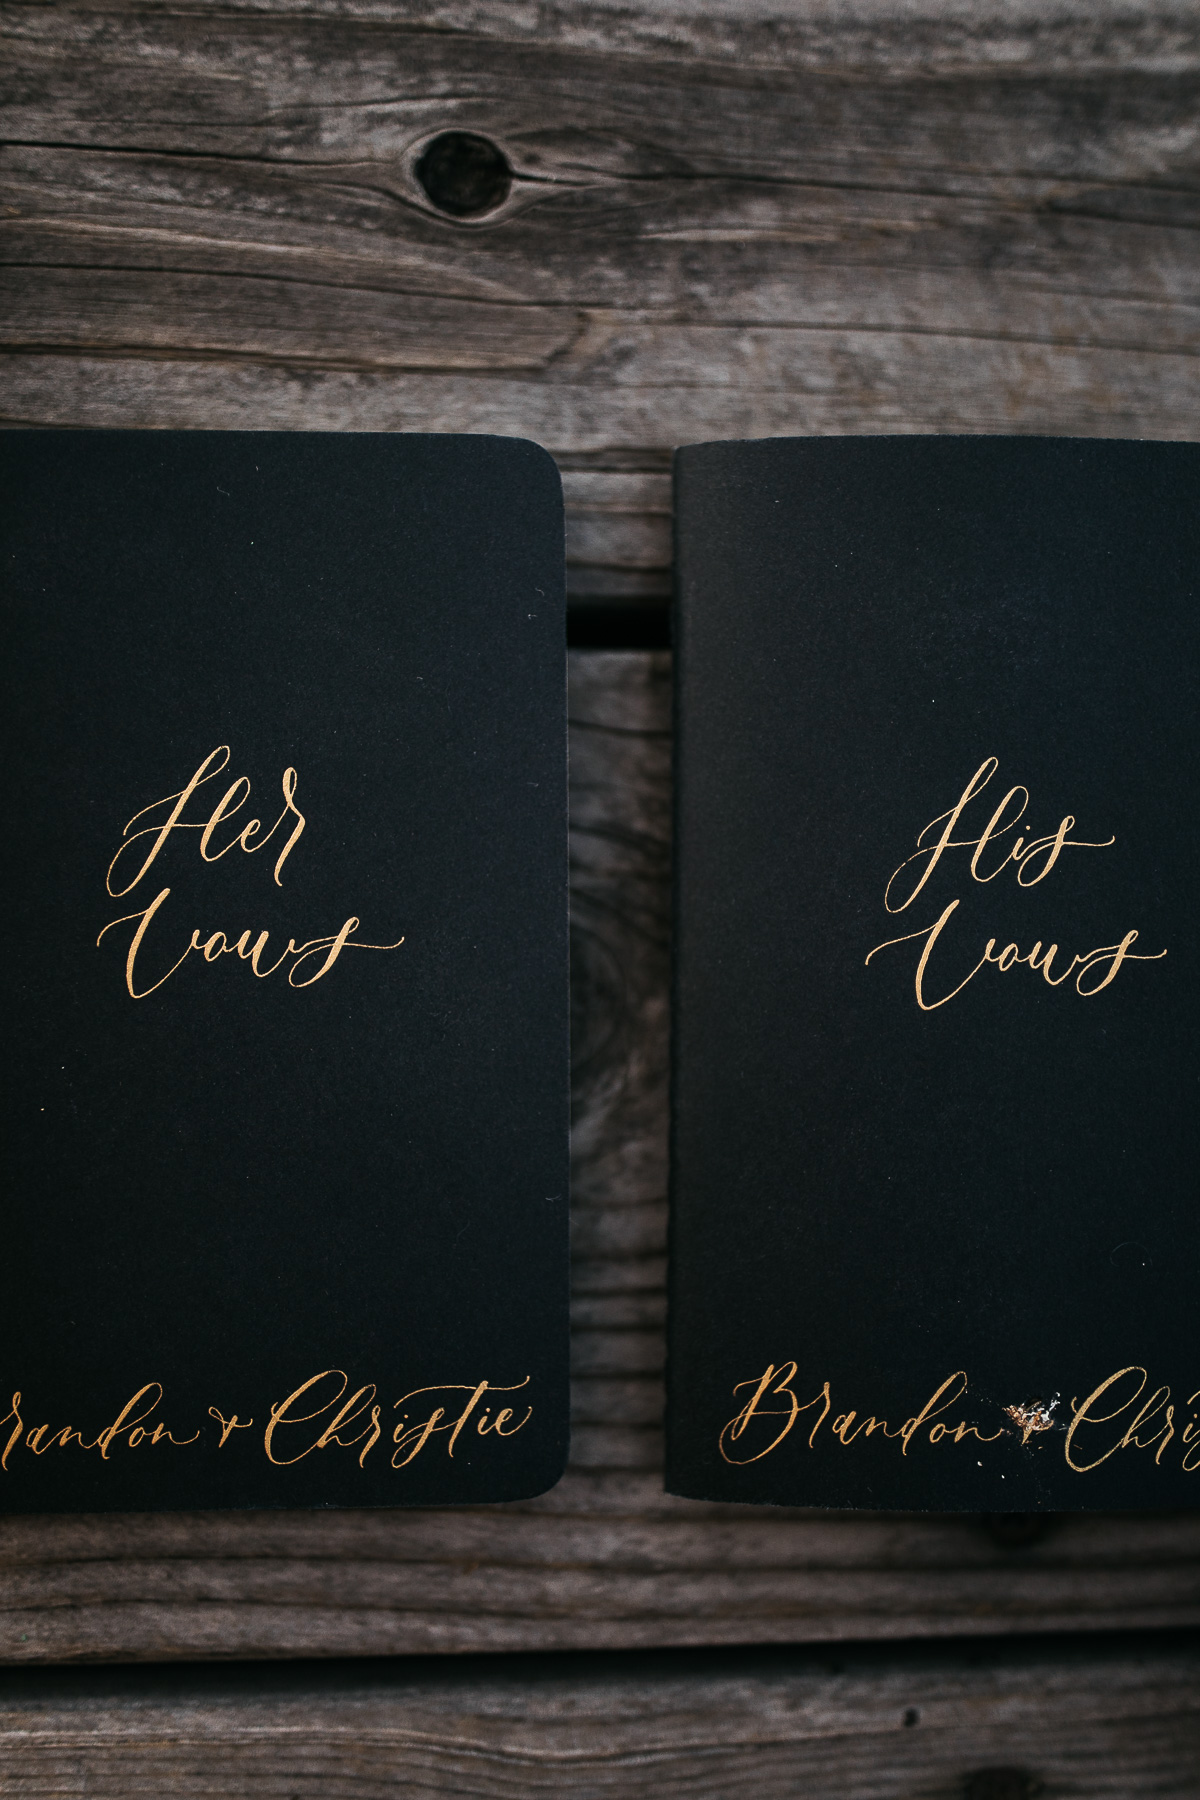 Her
Vows
randon & Christie
His
Vows
Brandon & Chris